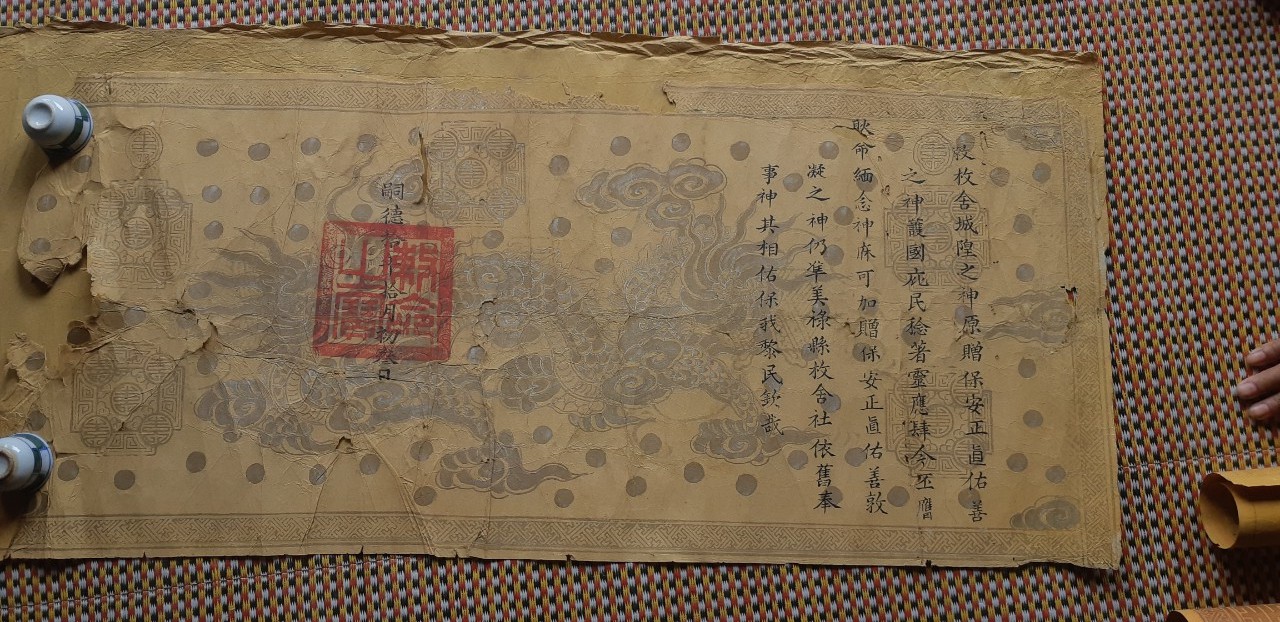 敕枚舍城隍之神原贈保安正直佑善
之神護國庇民稔著靈應肆今丕膺
耿命緬念神庥可加贈保安正直佑善敦
凝之神仍準美祿縣枚舍社依舊奉
事神其相佑保我黎民欽哉
嗣德拾年拾月初叁日
敕命之寶